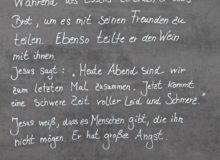 Während des Essens
Brot, um es mit seinen Freunden zu
teilen. Ebenso teilte er den Wein
mit ihnen
Jesus sagt: „Heute Abend sind wir
zum letzten Mal zusammen. Jetzt kommt
eine Schwere Zeit voller Leid und Schmerz."
Jesus weiß, dass es Menschen gibt, die ihn
nicht mögen. Er hat große Angst.